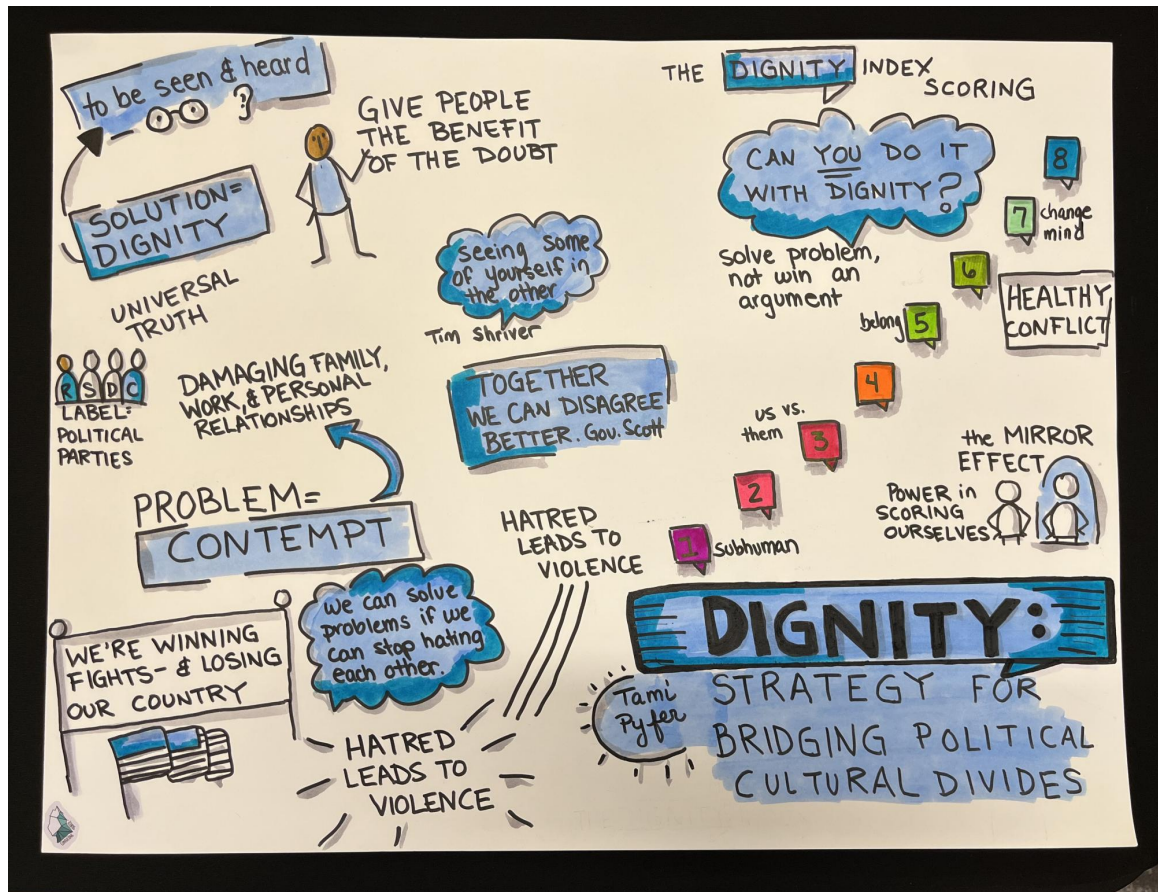 to be seen & heard
GIVE PEOPLE
THE BENEFIT
OF THE DOUBT
SOLUTION=
DIGNITY
UNIVERSAL
TRUTH
seeing some
of yourself in
the other
Tim Shriver
R S D C
LABEL:
POLITICAL
PARTIES
DAMAGING FAMILY,
WORK, & PERSONAL
RELATIONSHIPS
TOGETHER
WE CAN DISAGREE
BETTER. Gov. Scott
PROBLEM=
CONTEMPT
HATRED
LEADS TO
VIOLENCE
we can solve
problems if we
can stop hating
each other.
WE'RE WINNING
FIGHTS- & LOSING
OUR COUNTRY
HATRED
LEADS TO
VIOLENCE
THE DIGNITY INDEX
SCORING
CAN YOU DO IT
WITH DIGNITY?
solve problem,
not win an
argument
8
7 change
mind
6
HEALTHY
CONFLICT
belong 5
4
us vs.
them 3
2
1 subhuman
the MIRROR
EFFECT
POWER in
SCORING
OURSELVES
DIGNITY:
Tami
Pyfer
STRATEGY FOR
BRIDGING POLITICAL
CULTURAL DIVIDES